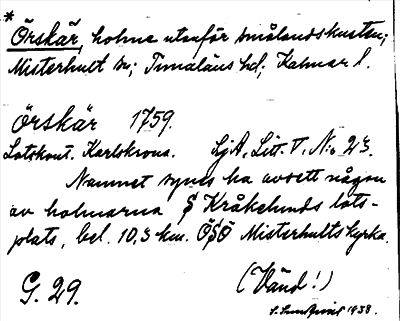 *
Örskär, holme utanför smålandskusten;
Misterhult sn; Tunaläns hd; Kalmar l.
Örskär 1759.
Lotskont. Karlskrona. SjA, Litt. V, No 23.
Namnet synes ha avsett någon
av holmarna Kråkelunds lots-
plats, bel. 10,3 km. ÖSÖ Misterhults kyrka.
G. 29.
(Vänd!)
1938.